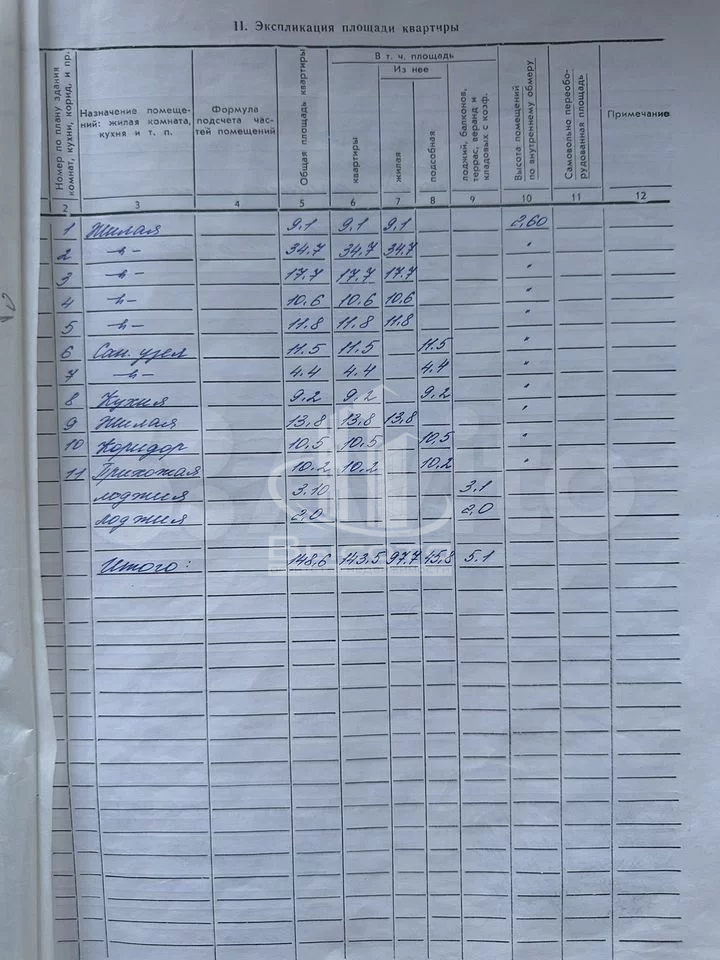 II. Экспликация площади квартиры
Номер по плану здания комнат, кухни, корид. и пр.
Назначение помеще-
ний: жилая комната,
кухня и т. п.
Формула
подсчета час-
тей помещений
Общая площадь квартиры
В т. ч. площадь
Из нее
квартиры
жилая
подсобная
лоджий, балконов,
террас, веранд и
кладовых с коэф.
Высота помещений
по внутреннему обмеру
Самовольно переобо-
рудованная площадь
Примечание
2 3 4 5 6 7 8 9 10 11 12
1 Жилая 9,1 9,1 9,1 2,60
2 -"- 34,7 34,7 34,7 "
3 -"- 17,7 17,7 17,7 "
4 -"- 10,6 10,6 10,6 "
5 -"- 11,8 11,8 11,8 "
6 Сан. узел 11,5 11,5 11,5 "
7 -"- 4,4 4,4 4,4 "
8 Кухня 9,2 9,2 9,2 "
9 Жилая 13,8 13,8 13,8 "
10 Коридор 10,5 10,5 10,5 "
11 Прихожая 10,2 10,2 10,2 "
лоджия 3,10 3,1
лоджия 2,0 2,0
Итого: 148,6 143,5 97,7 45,8 5,1